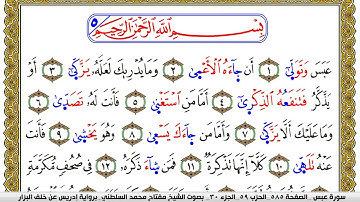 بِسْمِ اللَّهِ الرَّحْمَٰنِ الرَّحِيمِ
عَبَسَ وَتَوَلَّىٰ ١ أَن جَآءَهُ الْأَعْمَىٰ ٢ وَمَا يُدْرِيكَ لَعَلَّهُ يَزَّكَّىٰ ٣ أَوْ
يَذَّكَّرُ فَتَنفَعُهُ الذِّكْرَىٰ ٤ أَمَّا مَنِ اسْتَغْنَىٰ ٥ فَأَنتَ لَهُ تَصَدَّىٰ ٦
وَمَا عَلَيْكَ أَلَّا يَزَّكَّىٰ ٧ وَأَمَّا مَن جَآءَكَ يَسْعَىٰ ٨ وَهُوَ يَخْشَىٰ ٩ فَأَنتَ
عَنْهُ تَلَهَّىٰ ١٠ كَلَّآ إِنَّهَا تَذْكِرَةٌ ١١ فَمَن شَآءَ ذَكَرَهُ ١٢ فِي صُحُفٍ مُّكَرَّمَةٍ
سورة عبس الصفحة ٥٨٥ الحزب ٥٩ الجزء ٣٠ بصوت الشيخ مفتاح محمد السلطني برواية إدريس عن خلف البزار